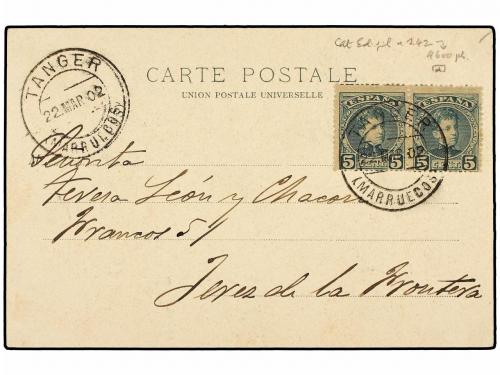 Cat Ed. pl n 242
4600 pts.
TANGER
22.MAR.02
(MARRUECOS)
CARTE POSTALE
UNION POSTALE UNIVERSELLE
ESPAÑA ESPAÑA
5 5 5 5
TANGER
02
(MARRUECOS)
Señorita
Teresa León y Chacon
Francos 51
Jerez de la Frontera